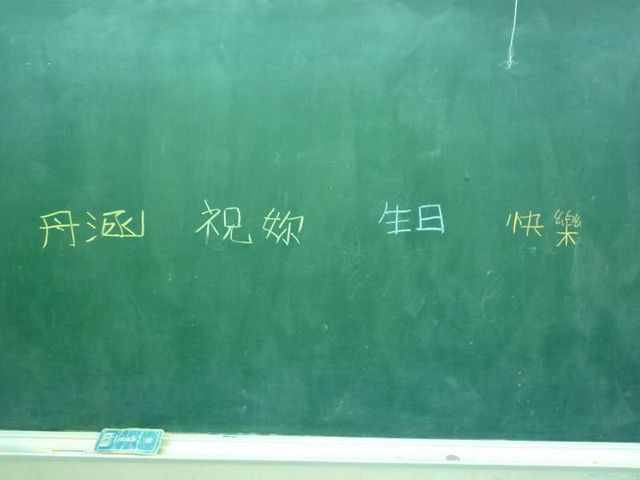 丹涵 祝妳 生日 快樂